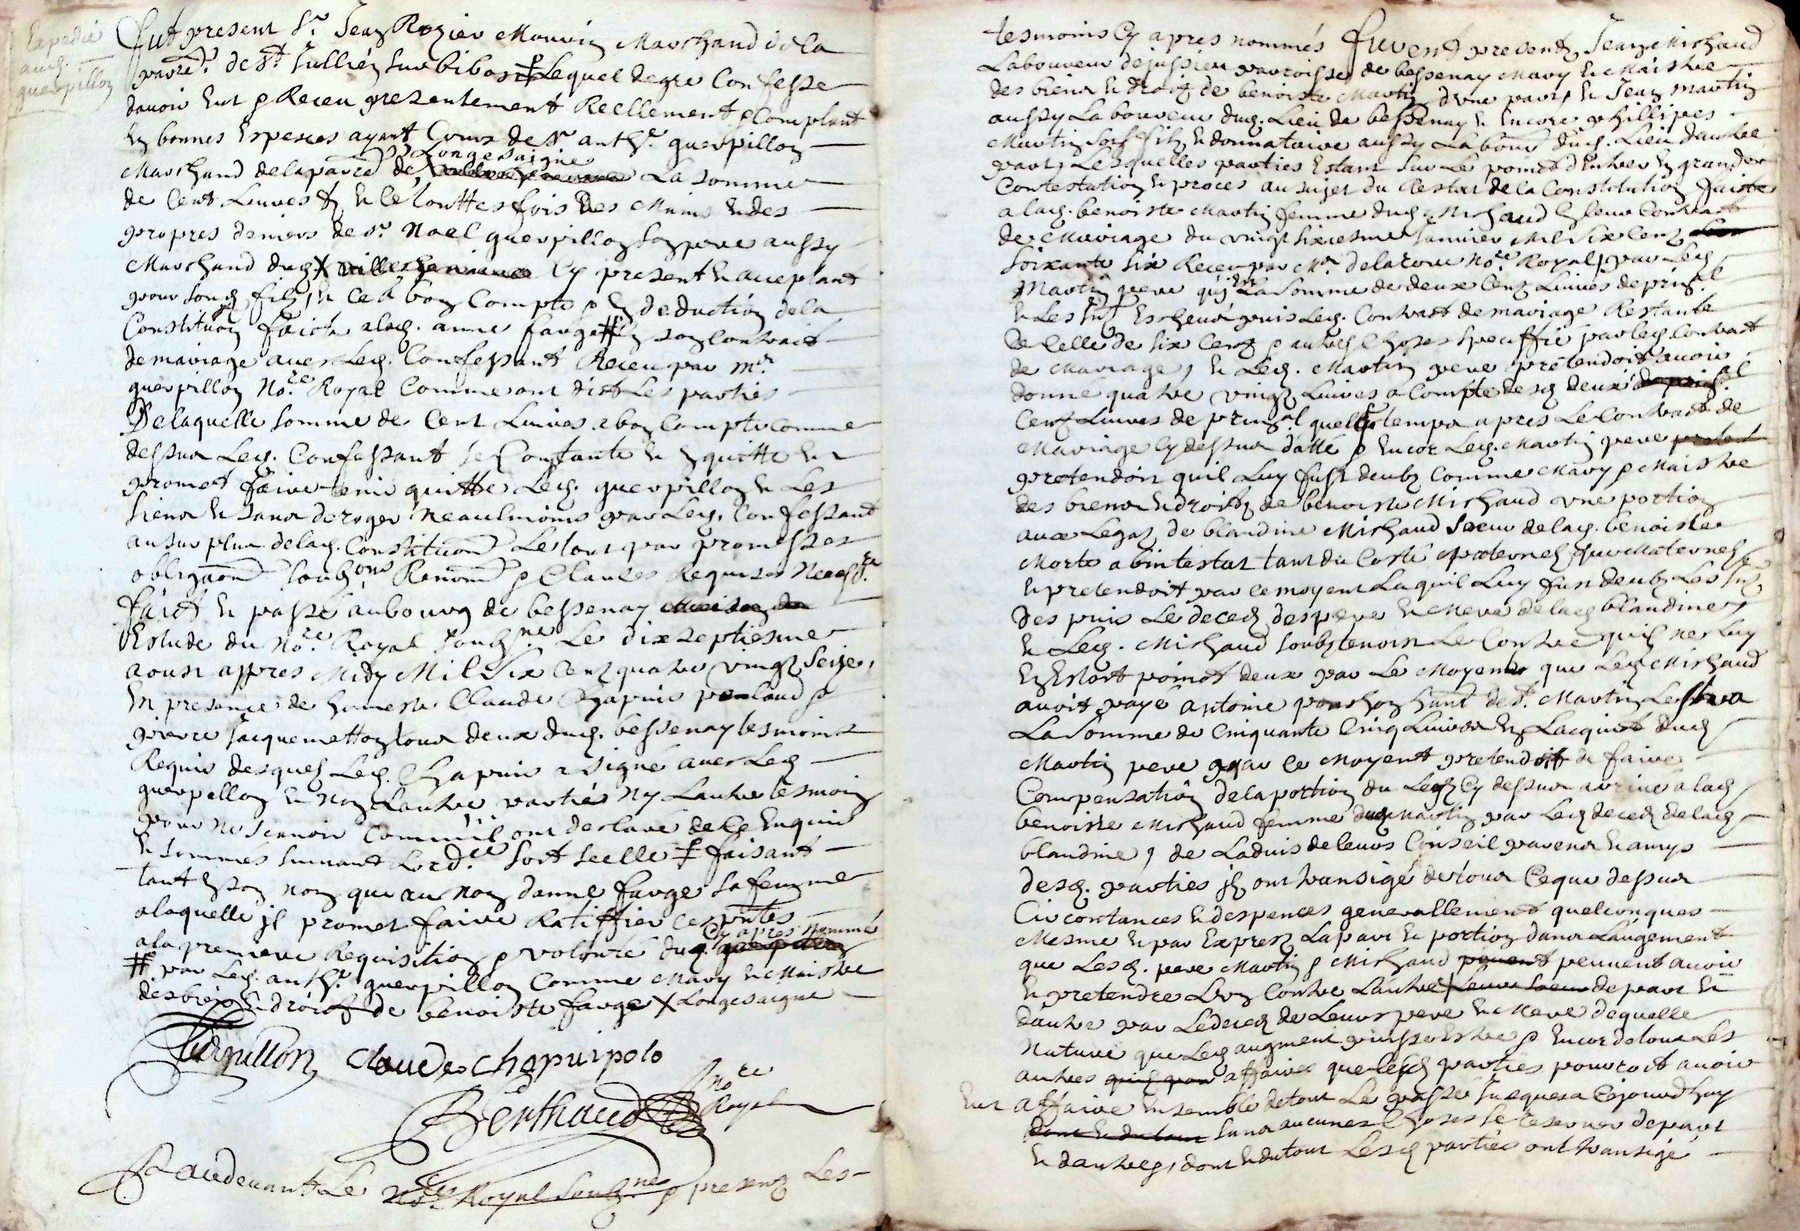 Expedié
aud.
guerpillon
fut present Sr Jean Rozier Mounier Marchand de la
parre. de St Jullien sur bibost Lequel de gre Confesse
davoir Eut & Receu presentement Reellement & Comptant
En bonnes Especes ayant Cours de Sr anthe. guerpillon
Longesaigne
Marchand de la parre de La somme
de Cent Livres Et ce touttesfois des Mains Et des
propres deniers de Sr Noel guerpillon son pere aussy
Marchand dud. Cy present Et acceptant
pour sond filz, Et ce a bon Compte & En deduction de la
Constitution faicte a lad. anne farge En son Contract
de mariage avec Led. Confessant Receu par Mr.
guerpillon Nore. Royal Comme ont dict Les parties
De laquelle somme de Cent Livres a bon Compte comme
dessus Led. Confessant se Contante Et En quitte Et
promet faire tenir quitte Led. guerpillon Et Les
siens Et sans deroger neaulmoins par Led. Confessant
au surplus de lad. Constitution Le tout par promesses
obligaons Renons & Clauses Requises Necessres
faict Et passé au bourg de bessenay
Estude du Nore Royal soubne. Le dixseptiesme
aoust appres Midy Mil six Cent quatre vingt seize,
En presence de honneste Claude Chapuis polaud &
pierre Jacquemetton tous deux dud. bessenay tesmoins
Requis desquels Led. Chapuis a signé avec Led
guerpillon Et Non Lautre parties Ny Lautre tesmoin
pour ne scavoir Comm'il ont desclare de ce Enquis
Et sommés suivant Lordce soit scellé faisant
tant En son nom que au nom danne farge sa femme
a laquelle il promet faire Ratiffier ces pntes
Cy apres nommé
a la premiere Requisition & volonté dud. guerpillon
# par Led. anthe. guerpillon Comme Mary Et Maistre
des biens Et droictz de benoiste farge X Longesaigne
Guerpillon Claude Chapuis polo
Berthaud Nore Royal
Pardevant Le Nore Royal soubne & presens Les
tesmoins Cy apres nommés furent presents Jean Michaud
Laboureur de Jussieu parroisse de bessenay Mary Et Maistre
des biens Et droitz de benoiste Martin dune part, Et Jean Martin
aussy Laboureur dud. Lieu de bessenay Et Encore phillipes
Martin son filz Et donnataire aussy Labour dud. Lieu dautre
part, Lesquelles parties Estant sur Le point d'Entrer En grande
Contestation Et proces au sujet du Restat de la Constitution faicte
a lad. benoiste Martin femme dud. Michaud En leur Contract
de Mariage du vingt sixiesme Janvier Mil six Cent
soixante six Receu par Mr. delaroue Nore Royal, par Led
Martin pere La somme de deux Cent Livres de prinal
Et Les Intt Escheus puis Led. Contract de mariage Restante
de Celle de six Cent & autres Choses speciffié par led. Contract
de Mariage, Et Led. Martin pere pretendoit avoir
donne quatre vingt Livres a Compte desd deux
Cent Livres de prinal quelque temps apres Le Contract de
Mariage Cy dessus datté & Encor Led. Martin pere
pretendoit quil Luy fust deub Comme Mary & Maistre
des biens Et droitz de benoiste Michaud une portion
aux Legat de blandine Michaud soeur de lad. benoiste
Morte abintestat tant du Costé paternel que Maternel
Et pretendoit par ce moyent La quil Luy fust deub Les Int
des puis Le deced des pere Et Mere de lad blandine
Et Led. Michaud soubstenoir Le Contre quil ne luy
En Estoit point deub par Le Moyent que Led Michaud
avoit payé antoine ponchon hant de St. Martin Lestra
La somme de Cinquante Cinq Livres En Lacquit dud
Martin pere par ce Moyent pretendoit de faire
Compensation de la portion du Legat Cy dessus arrivé a lad
benoiste Michaud femme dud Martin par Led deced de lad
blandine, de Ladvis de leurs Conseil parens Et amys
desd. parties ilz ont transigé de tout Ce que dessus
Circonstances Et despences generallement quelconques
Mesme Et par Expres La part Et portion dans Laugement
que Lesd. pere Martin & Michaud peuvent avoir
Et pretendre Lun Contre Lautre de part Et
dautre par Le deced de Leurs pere Et Mere dequelle
Nature que Led augment puisse Estre & Encor de tous Les
autres affaires que lesd parties pourroit avoir
Eut affaire Ensemble de tout Le passé Jusques a Cejourdhuy
sans aucunes Choses se reserver de part
Et dautres, dont Et du tout Lesd parties ont transigé